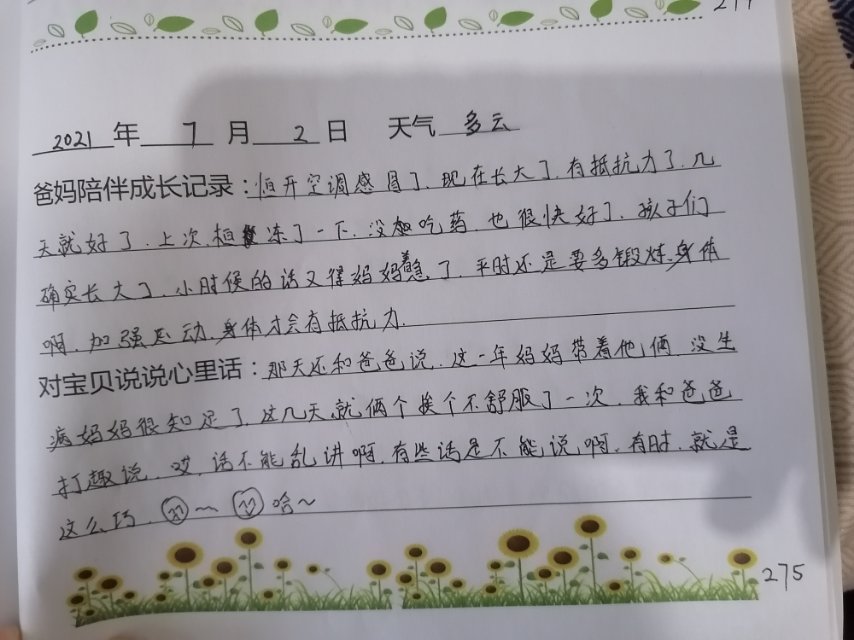 2021 年 7 月 2 日 天气 多云
爸妈陪伴成长记录：恒开空调感冒了．现在长大了．有抵抗力了．几
天就好了．上次．桓冻了一下．没吃药．也很快好了．孩子们
确实长大了．小时候的话又得妈妈着急了．平时还是要多锻炼身体
啊．加强运动．身体才会有抵抗力．
对宝贝说说心里话：那天还和爸爸说．这一年妈妈带着他俩 没生
病妈妈很知足了．这几天就俩个挨个不舒服了一次．我和爸爸
打趣说．哎．话不能乱讲啊．有些话是不能说啊．有时．就是
这么巧．～哈～
275